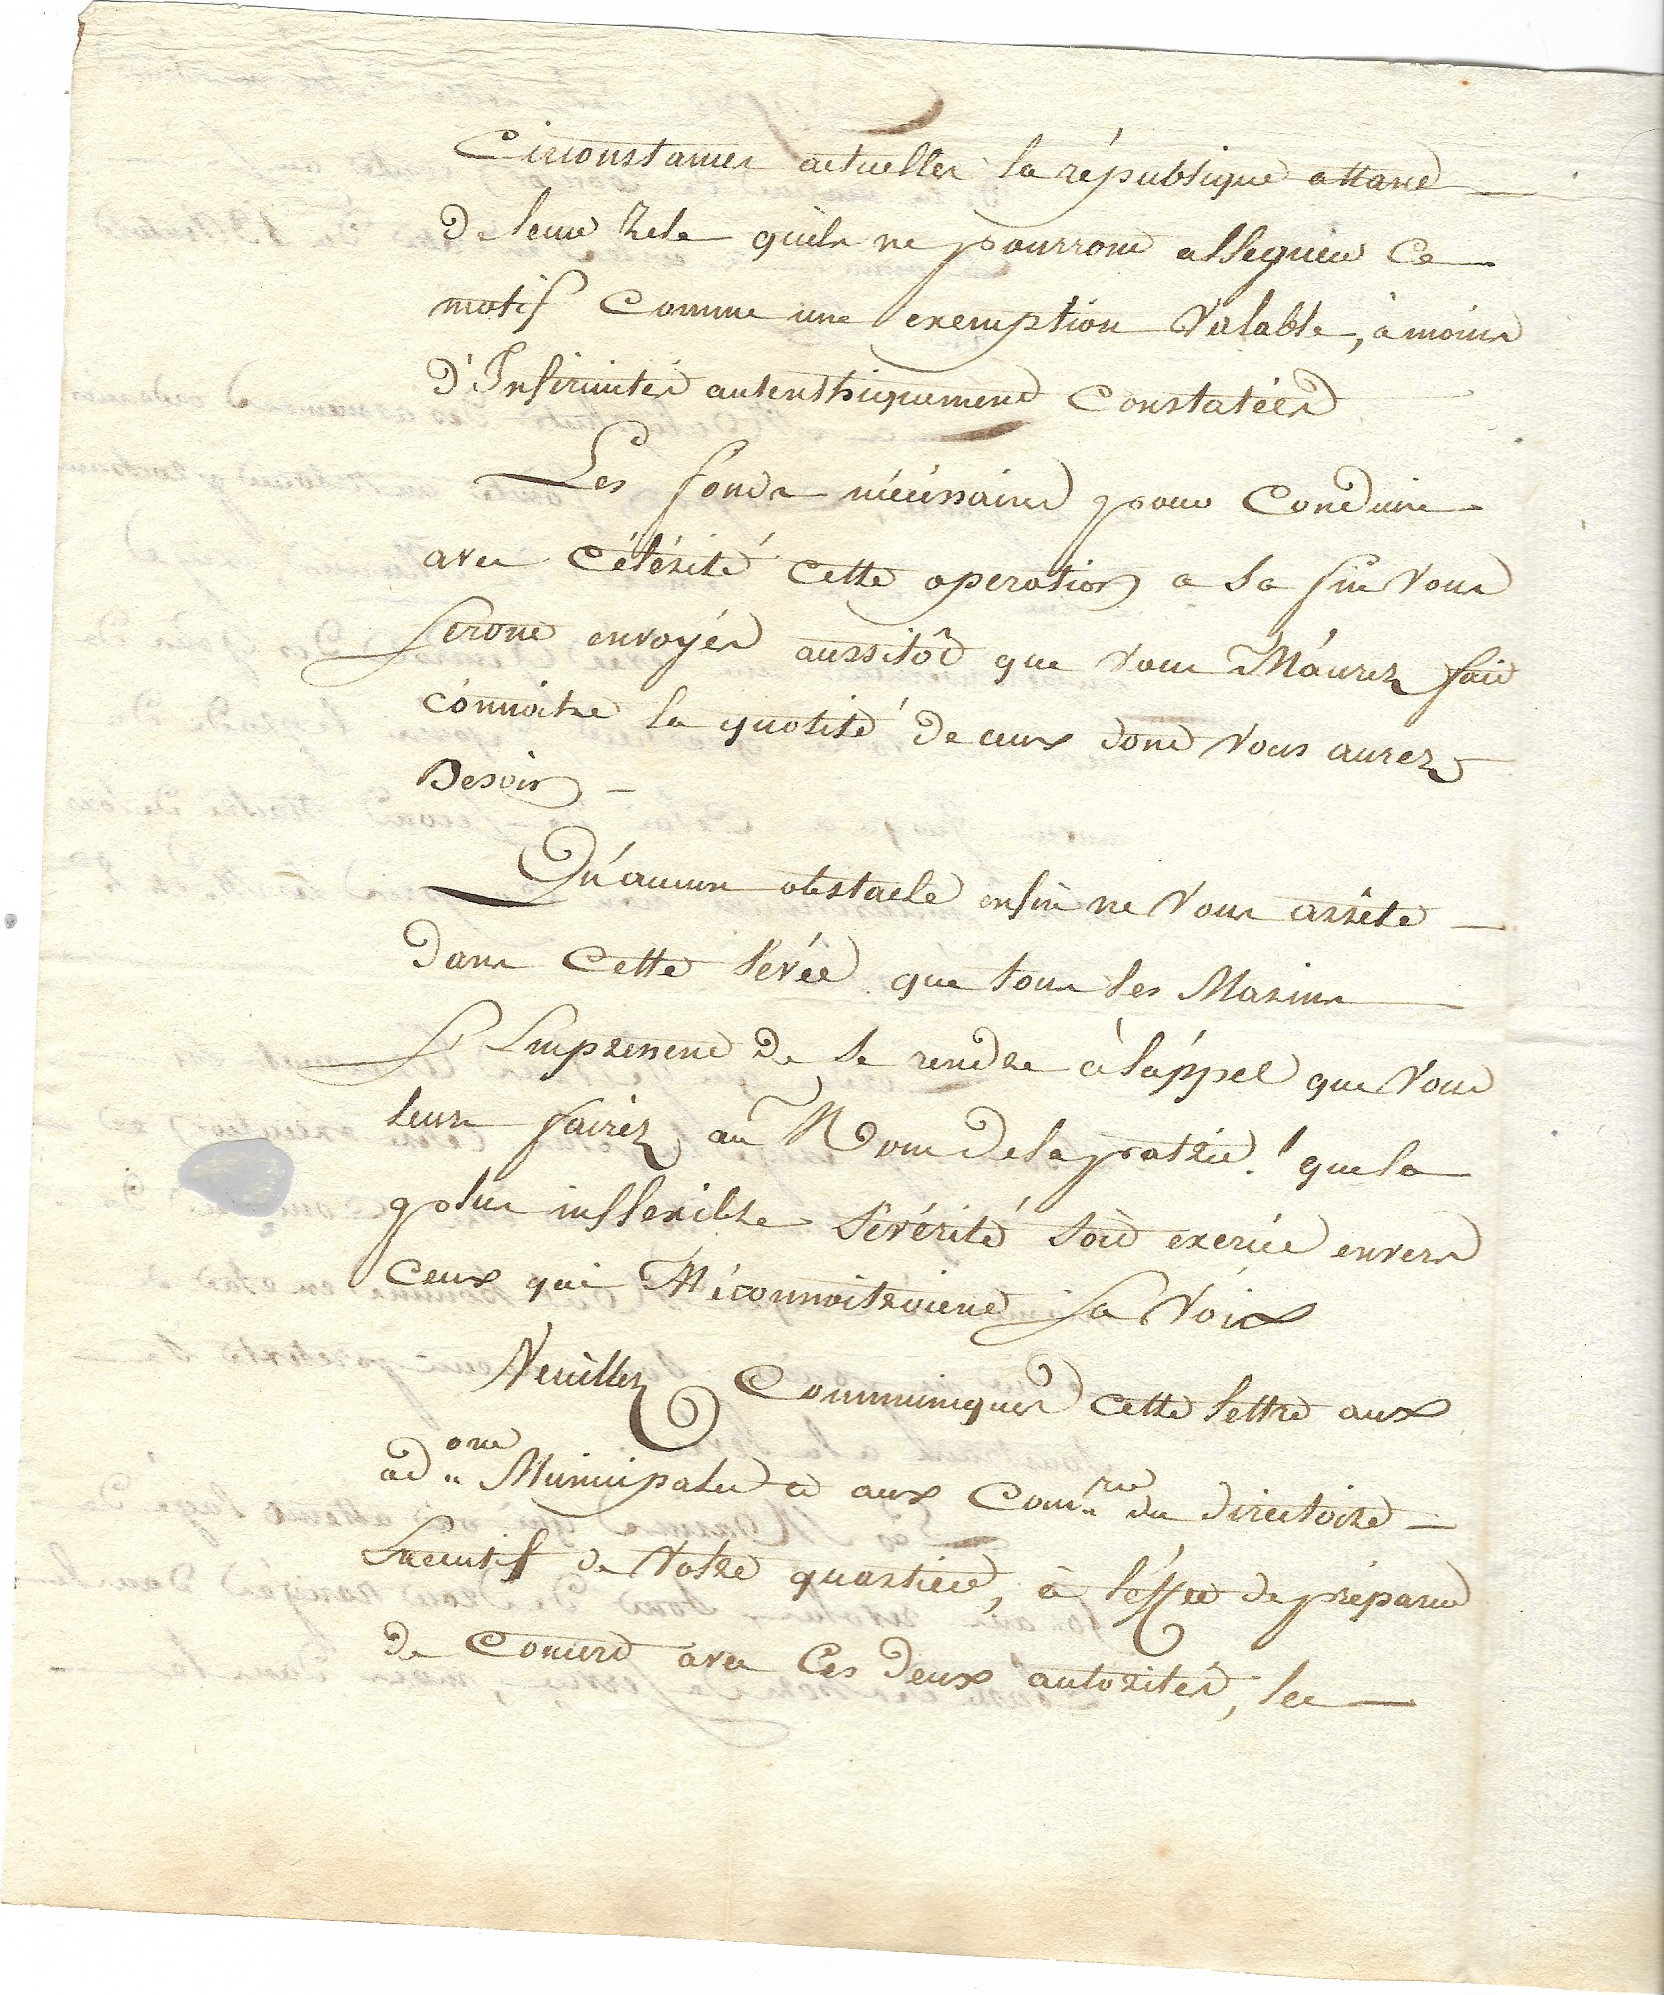 Circonstances actuelles la république attend
de leur zele quils ne pourront alleguer Ce
motif Comme une exemption Valable, à moins
d'Infirmités autenthiquement Constatées
Les fonds nécéssaires pour Conduire
avec Célérité Cette operation a sa fin Vous
seront envoyés aussitôt que Vous M'aurez fait
connoitre la quotité de ceux dont Vous aurez
Besoin
Qu'aucun obstacle enfin ne Vous arrête
dans Cette levée que tous les Marins
S'Empressent de se rendre à l'appel que Vous
leur fairez au Nom de la patrie ! que la
plus inflexible Sévérité soit exercée envers
Ceux qui Méconnoitroient sa Voix
Veuillez Communiquer Cette lettre aux
ad.ons Municipales et aux Com.res du directoire
Executif de Votre quartier, à l'effet de préparer
de Concert avec Ces deux autorités, les